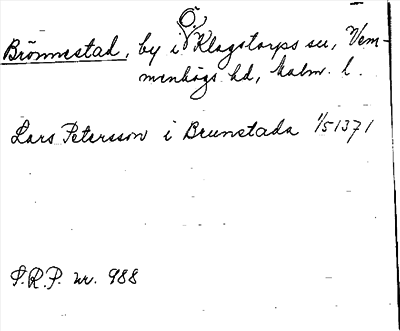 Brönnestad, by i Ö. Klagstorps sn, Vem-
menhögs hd, Malm. l.
Lars Petersson i Brunstada 1/5 1371
S.R.P. nr. 988